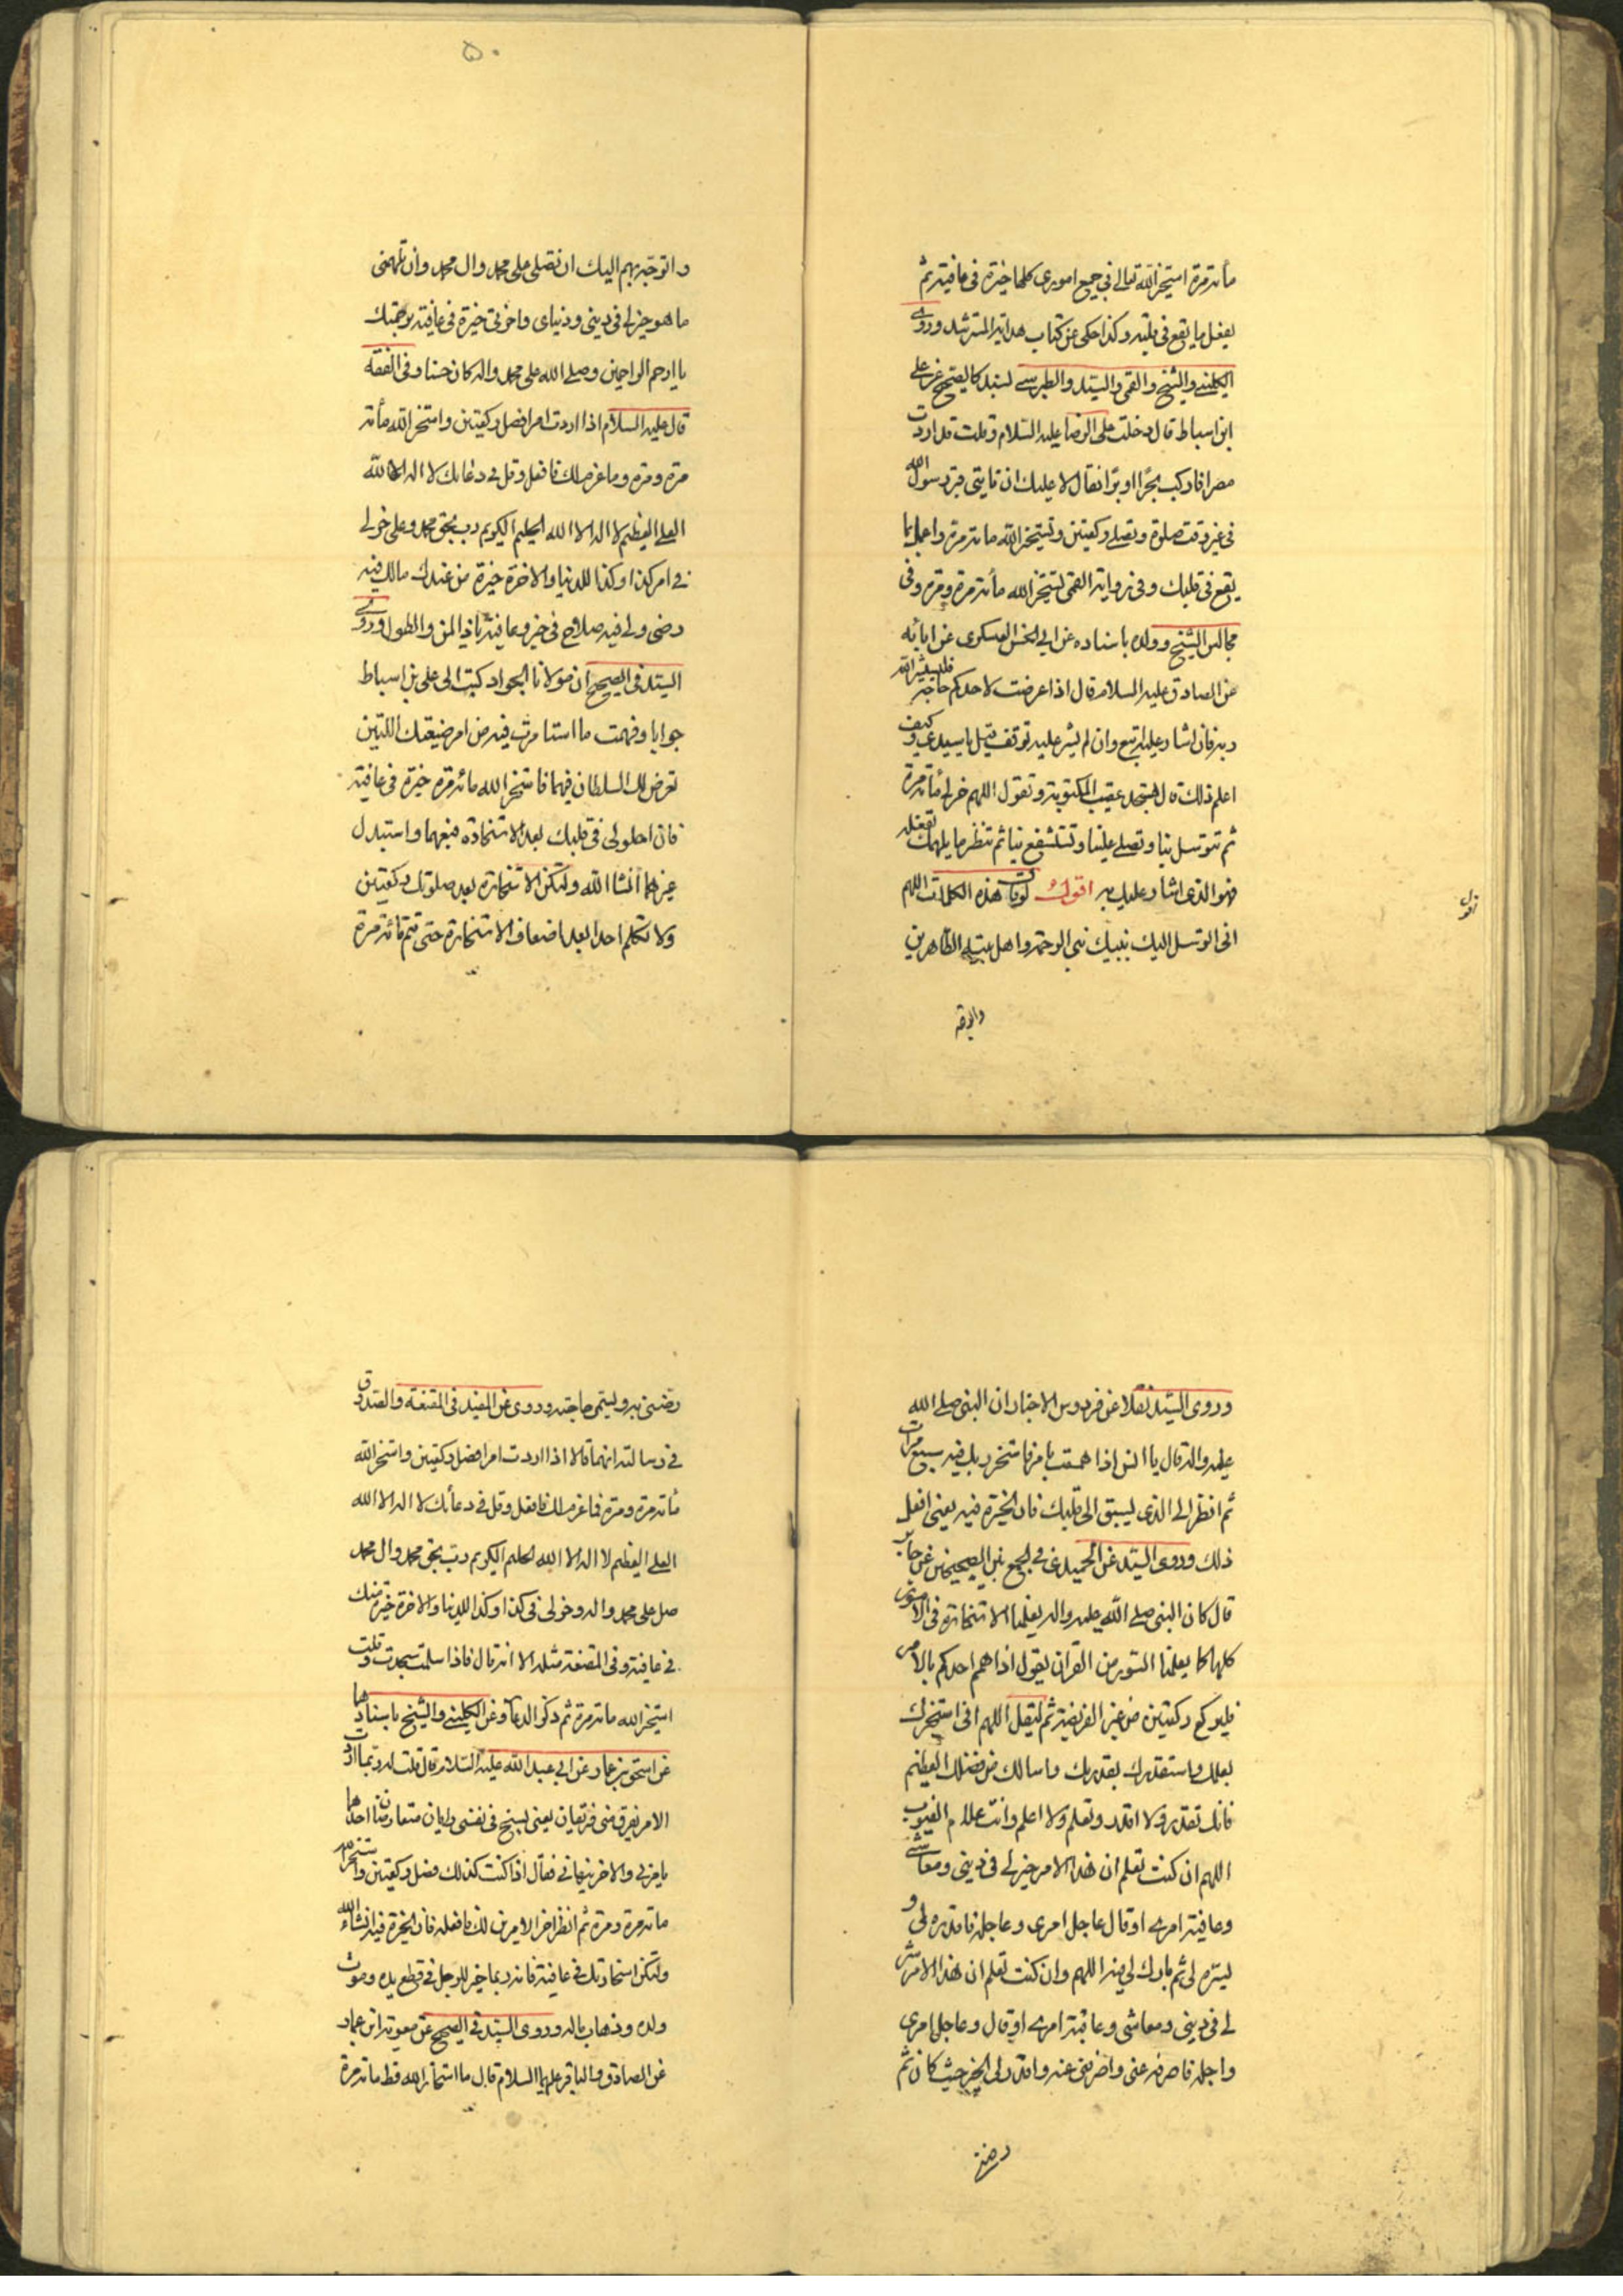 مأته مرة استخیر الله تعالی فی جمیع اموری کلها خیرة فی عافیة ثم
یفعل ما یقع فی قلبه وکذا حکی عن کتاب هدایة المسترشد وروی
الکلینی والشیخ والقمی والسید والطبرسی بسند کالصحیح عن علی
ابن اسباط قال دخلت علی الرضا علیه السلام وقلت قد اردت
مصرا فارکب بحرا او برا فقال لا علیک ان تاتی قبر رسول الله
فی غیر وقت صلوة وتصلی رکعتین وتستخیر الله مأته مرة واعمل بما
یقع فی قلبک وفی روایة القمی تستخیر الله مأته مرة ومرة وفی
مجالس الشیخ وولده باسناده عن ابی الحسن العسکری عن ابائه
عن الصادق علیه السلام قال اذا عرضت لاحدکم حاجة فلیستشر الله
ربه فان اشار علیه اتبع وان لم یشر علیه توقف قیل یا سیدی وکیف
اعلم ذلک قال یسجد عقیب المکتوبة وتقول اللهم خر لی مأته مرة
ثم تتوسل بنا وتصلی علینا وتستشفع بنا ثم تنظر ما یلهمک تفعله
فهو الذی اشار علیک به اقول لو قلت هذه الکلمات اللهم
انی اتوسل الیک بنبیک نبی الرحمة واهل بیته الطاهرین
واتوجه
۵۰
واتوجه بهم الیک ان تصلی علی محمد وال محمد وان تلهمنی
ما هو خیر لی فی دینی ودنیای واخرتی خیرة فی عافیة برحمتک
یا ارحم الراحمین وصلی الله علی محمد واله کان حسنا وفی الفقه
قال علیه السلام اذا اردت امرا فصل رکعتین واستخر الله مأته
مرة ومرة وما عزم لک فافعل وقل فی دعائک لا اله الا الله
العلی العظیم لا اله الا الله الحلیم الکریم رب بحق محمد وعلی خر لی
فی امر کذا وکذا للدنیا والاخرة خیرة من عندک مالک فیه
رضی ولی فیه صلاح فی خیر وعافیة یا ذا المن والطول وروی
السید فی الصحیح ان مولانا الجواد کتب الی علی بن اسباط
جوابا وفهمت ما استأمرت فیه من امر ضیعتک اللتین
تعرض لک السلطان فیهما فاستخر الله مائة مرة خیرة فی عافیة
فان احلولی فی قلبک بعد الاستخارة فبعهما واستبدل
غیرهما انشا الله ولتکن الاستخارة بعد صلوتک رکعتین
ولا تکلم احدا بعد اضعاف الاستخارة حتی تتم مائة مرة
وروی السید نقلا عن فردوس الاخبار ان النبی صلی الله
علیه واله قال یا انس اذا هممت بامر فاستخر ربک فیه سبع مرات
ثم انظر الی الذی یسبق الی قلبک فان الخیرة فیه یعنی افعل
ذلک وروی السید عن الحمیدی فی الجمع بین الصحیحین عن جابر
قال کان النبی صلی الله علیه واله یعلمنا الاستخارة فی الامور
کلها کما یعلمنا السورة من القران یقول اذا هم احدکم بالامر
فلیرکع رکعتین من غیر الفریضة ثم لیقل اللهم انی استخیرک
بعلمک واستقدرک بقدرتک واسالک من فضلک العظیم
فانک تقدر ولا اقدر وتعلم ولا اعلم وانت علام الغیوب
اللهم ان کنت تعلم ان هذا الامر خیر لی فی دینی ومعاشی
وعاقبة امری او قال عاجل امری وعاجله فاقدره لی و
یسره لی ثم بارک لی فیه اللهم وان کنت تعلم ان هذا الامر شر
لی فی دینی ومعاشی وعاقبة امری او قال وعاجل امری
واجله فاصرفه عنی واصرفنی عنه واقدر لی الخیر حیث کان ثم
رضنی
رضنی به ویسمی حاجته وروی عن المفید فی المقنعة والصدوق
فی رسالته انهما قالا اذا اردت امرا فصل رکعتین واستخر الله
مأته مرة ومرة فما عزم لک فافعل وقل فی دعائک لا اله الا الله
العلی العظیم لا اله الا الله الحلیم الکریم رب بحق محمد وال محمد
صل علی محمد واله وخر لی فی کذا وکذا للدنیا والاخرة خیرة منک
فی عافیة وفی المقنعة مثله الا انه قال فاذا سلمت سجدت وقلت
استخیر الله مأته مرة ثم ذکر الدعاء وعن الکلینی والشیخ باسنادهما
عن اسحق بن عمار عن ابی عبد الله علیه السلام قال قلت له ربما اردت
الامر یفرق منی فریقان یعنی یسنح فی نفسی رایان متعارضان احدهما
یامرنی والاخر ینهانی فقال اذا کنت کذلک فصل رکعتین واستخر الله
مأته مرة ومرة ثم انظر احزم الامرین لک فافعله فان الخیرة فیه انشاء الله
ولتکن استخارتک فی عافیة فانه ربما خیر للرجل فی قطع یده وموت
ولده وذهاب ماله وروی السید فی الصحیح عن معویة ابن عمار
عن الصادق والباقر علیهما السلام قال ما استخار الله قط مأته مرة